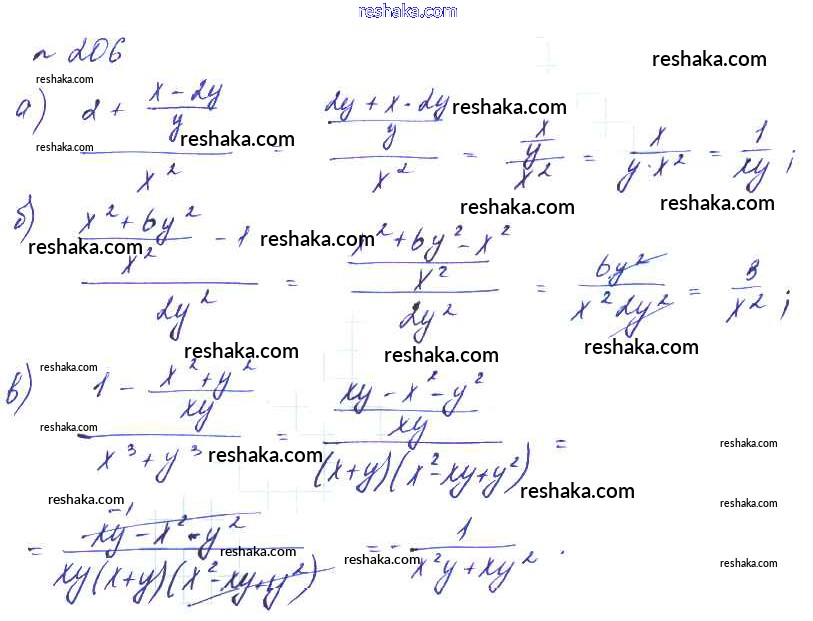 reshaka.com
n 206
reshaka.com reshaka.com
а) (2 + (x - 2y)/y)/x² = ((2y + x - 2y)/y)/x² = (x/y)/x² = x/(y · x²) = 1/xy ;
reshaka.com reshaka.com reshaka.com
reshaka.com reshaka.com
б) ((x² + 6y²)/x² - 1)/2y² = ((x² + 6y² - x²)/x²)/2y² = 6y²/(x² 2y²) = 3/x² ;
reshaka.com reshaka.com
reshaka.com reshaka.com reshaka.com
reshaka.com
в) (1 - (x² + y²)/xy)/(x³ + y³) = ((xy - x² - y²)/xy)/((x + y)(x² - xy + y²)) =
reshaka.com reshaka.com reshaka.com
reshaka.com reshaka.com reshaka.com
-1
= (xy - x² - y²)/(xy(x + y)(x² - xy + y²)) = - 1/(x²y + xy²) .
reshaka.com reshaka.com reshaka.com